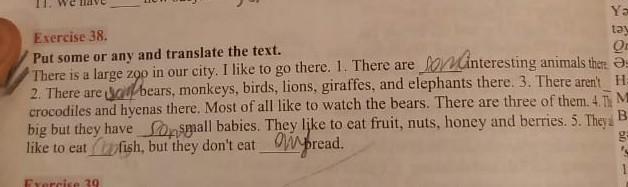 11. We have
Exercise 38.
Put some or any and translate the text.
There is a large zoo in our city. I like to go there. 1. There are some interesting animals there.
2. There are some bears, monkeys, birds, lions, giraffes, and elephants there. 3. There aren't
crocodiles and hyenas there. Most of all like to watch the bears. There are three of them. 4.
big but they have some small babies. They like to eat fruit, nuts, honey and berries. 5. They
like to eat fish, but they don't eat any bread.
Exercise 39